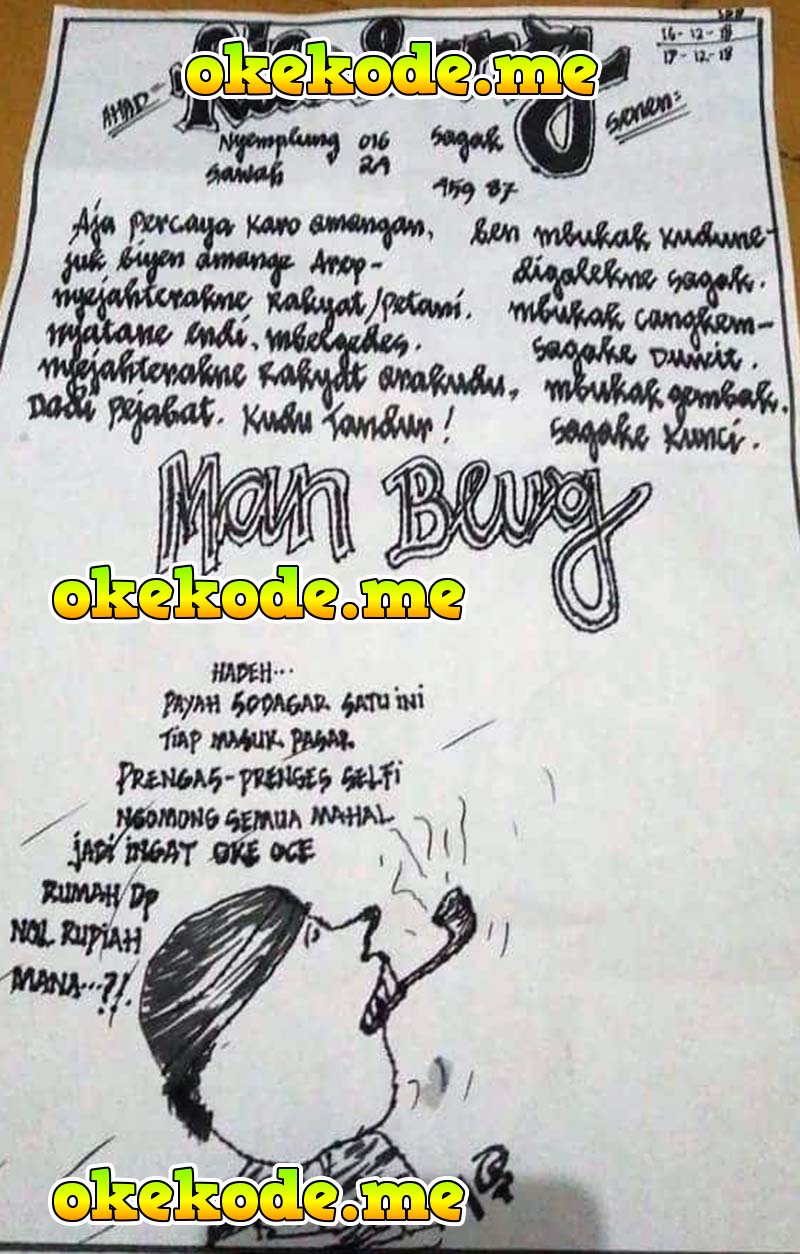 16-12-18
17-12-18
okekode.me
AHAD=
Senen=
Nyemplung 016
Sawah 2A
Sagak
459 87
Aja percaya karo omongan,
juk biyen omonge Arep-
nyejahterakne Rakyat/petani.
nyatane endi, mbelgedes.
nyejahterakne Rakyat orakudu,
Dadi pejabat. Kudu Tandur!
Ben mbukak kudune-
digolekne sagak.
mbukak cangkem-
sagake Duwit.
mbukak gembok.
sagake kunci.
Man Beug
okekode.me
HADEH...
PAYAH SODAGAR SATU INI
TIAP MASUK PASAR
PRENGAS-PRENGES SELFI
NGOMONG SEMUA MAHAL
JADI INGAT OKE OCE
RUMAH DP
NOL RUPIAH
MANA...?!
okekode.me